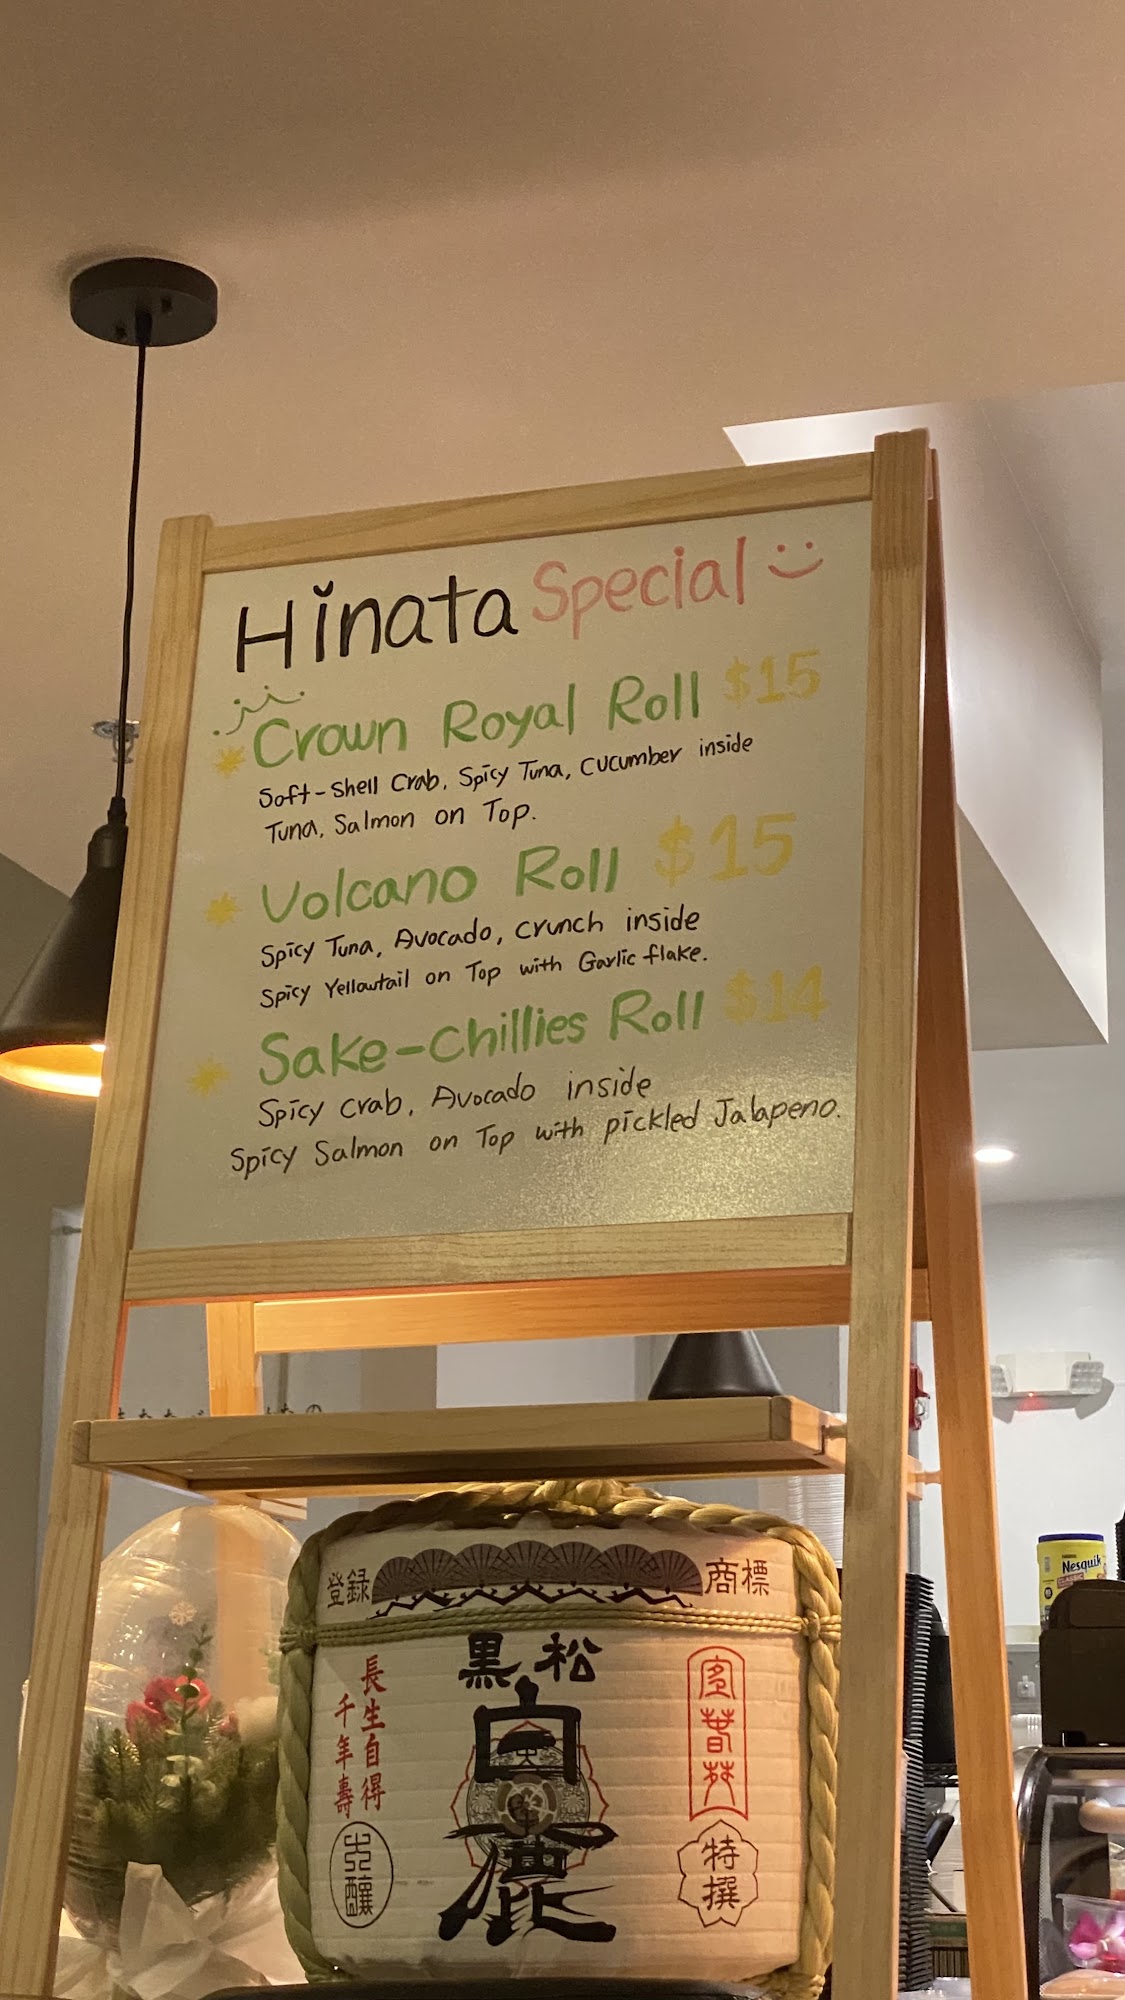 Hinata Special
Crown Royal Roll $15
Soft-Shell Crab, Spicy Tuna, Cucumber inside
Tuna, Salmon on Top.
Volcano Roll $15
Spicy Tuna, Avocado, crunch inside
Spicy Yellowtail on Top with Garlic flake.
Sake-chillies Roll $14
Spicy crab, Avocado inside
Spicy Salmon on Top with pickled Jalapeno.
登録
商標
黒松
白鹿
長生自得
千年壽
特撰
Nesquik
CLASSIC